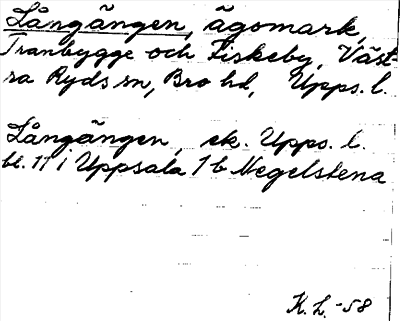 Långängen, ägomark,
Tranbygge och Fiskeby, Väst-
ra Ryds sn, Bro hd, Upps. l.
Långängen, ek. Upps. l.
bl. 11 i Uppsala 7 b Negelstena
K. L. -58